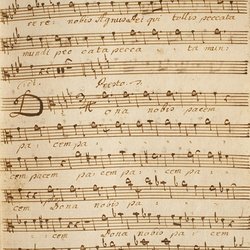 rere: nobis Agnus Dei qui tollis peccata
mundi pec cata pecca ta mun:
di et. Presto.
Dona nobis pacem
pa: cem pa:
cem pacem pa: cem pa: cem
cem Dona nobis pa:
cem Dona nobis pa: cem pa: